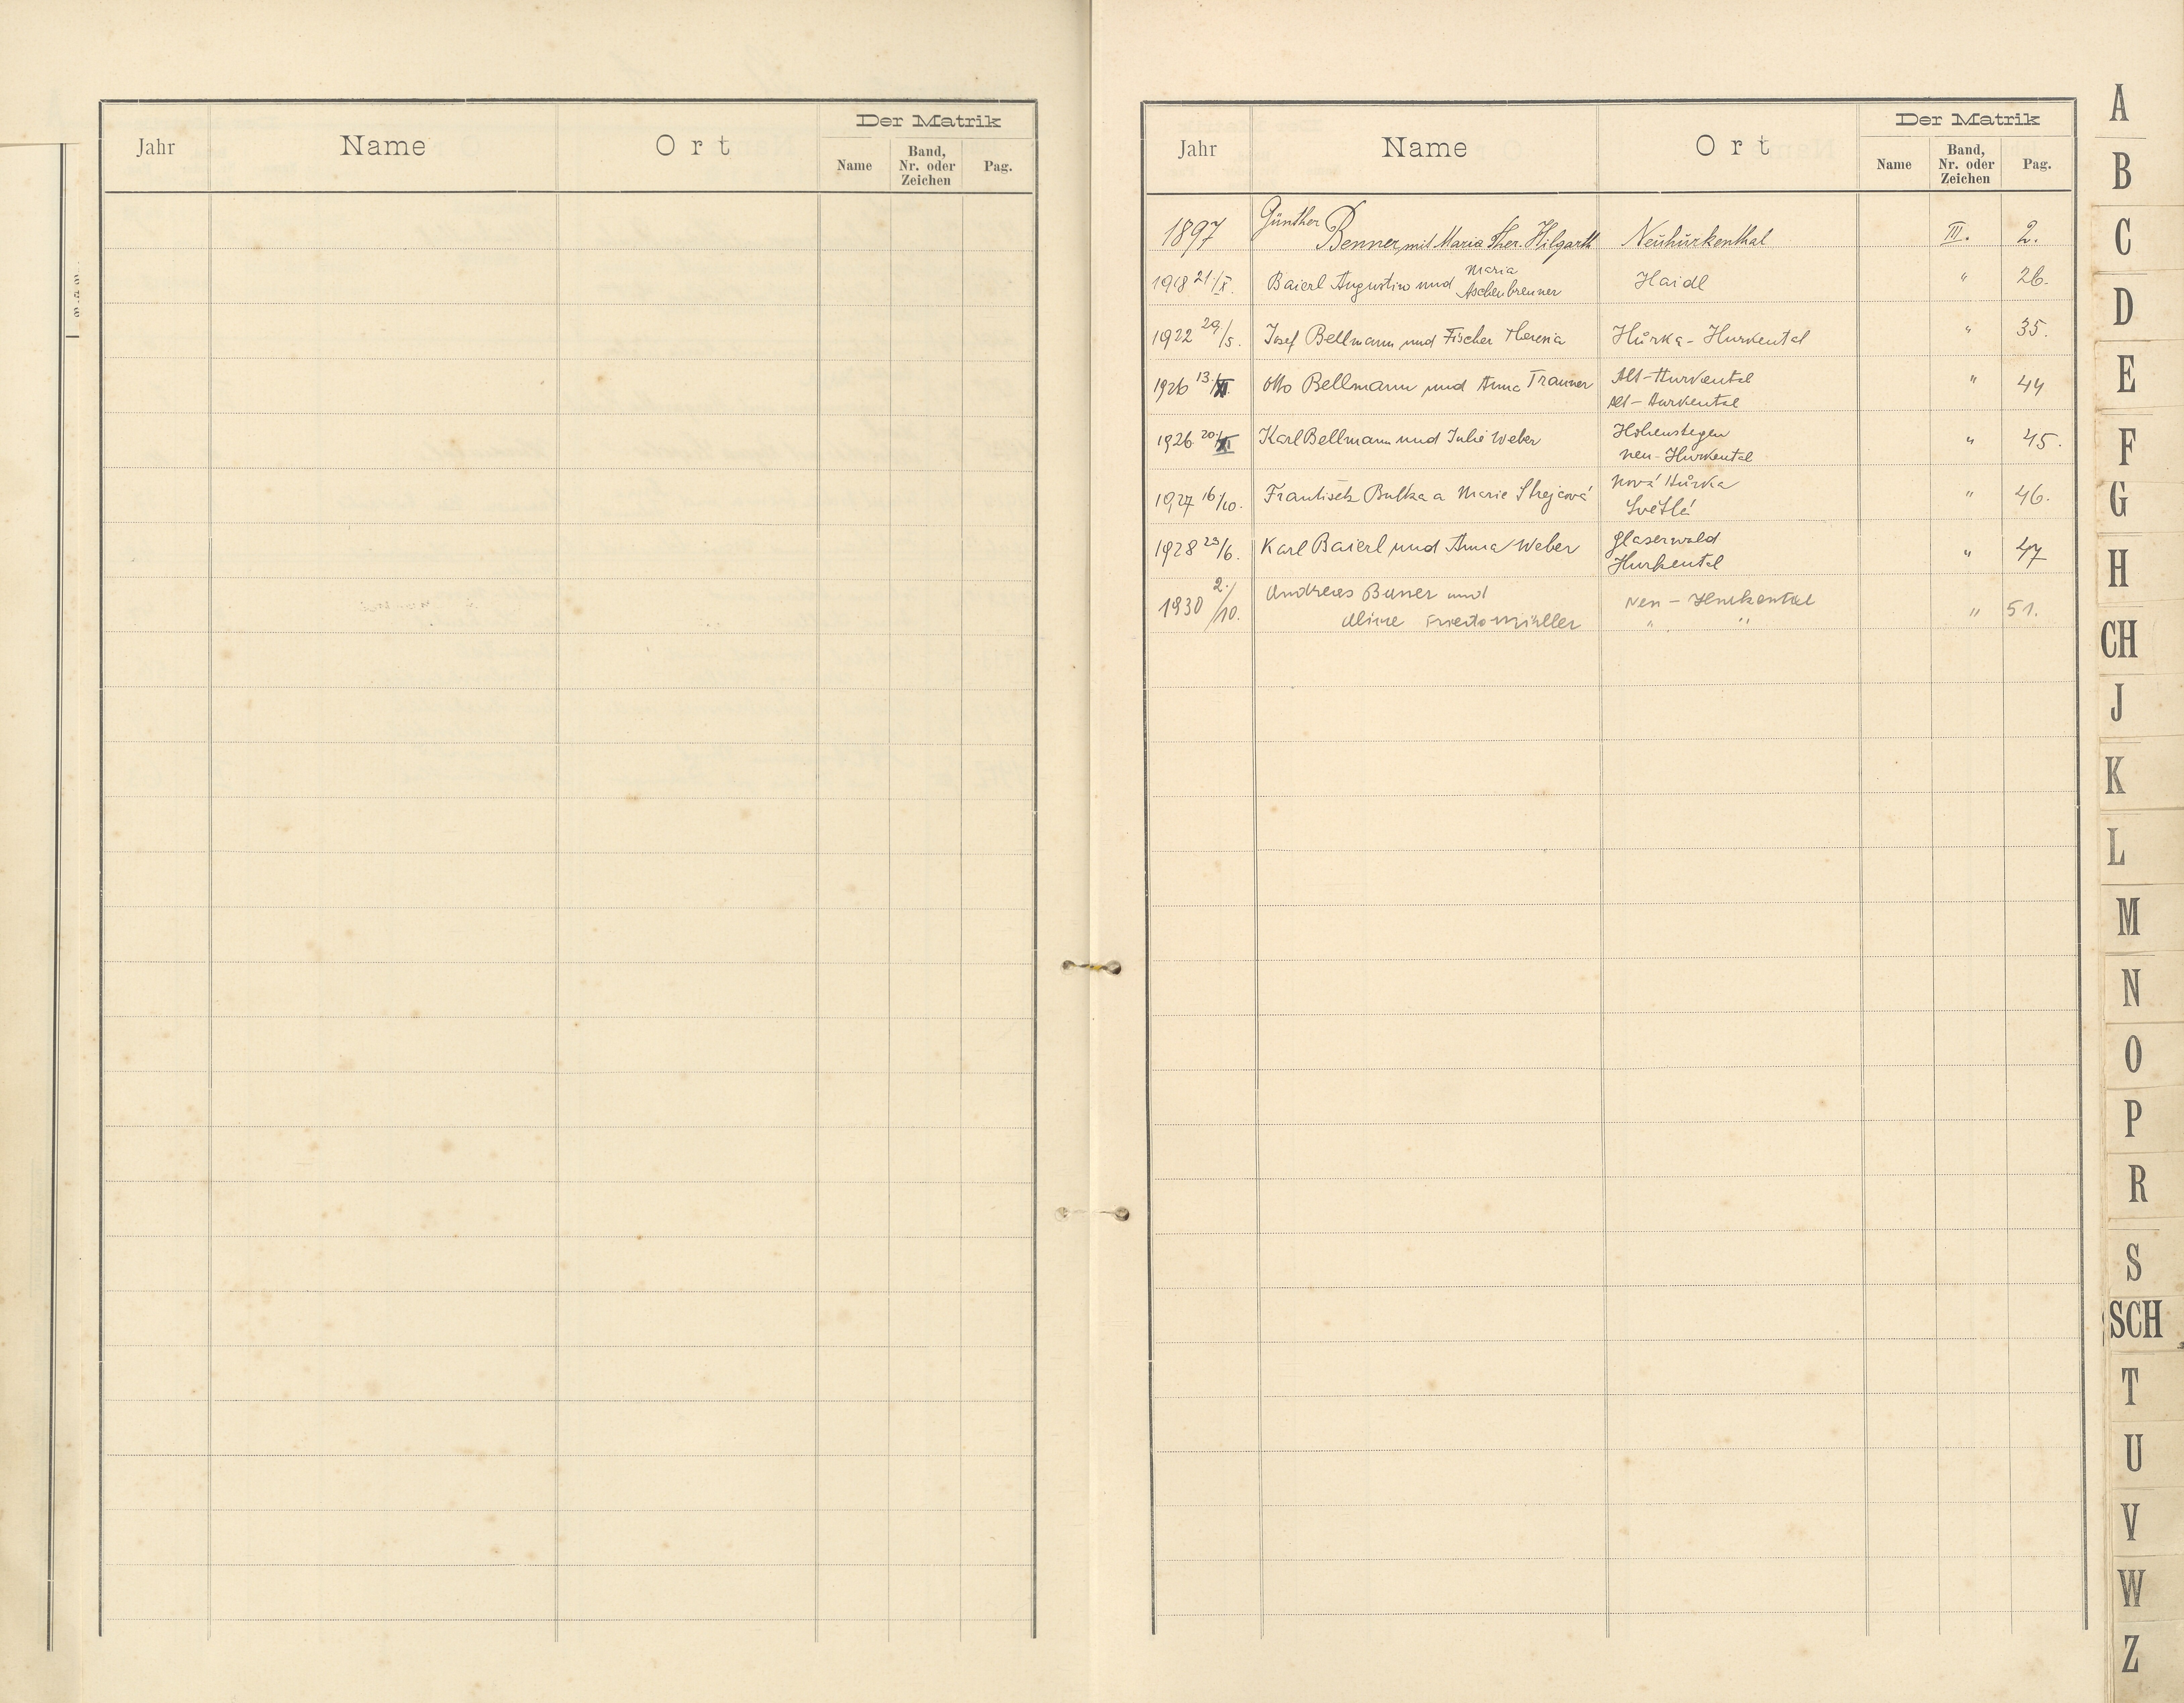 Jahr Name Ort Der Matrik
Name Band, Nr. oder Zeichen Pag.
Jahr Name Ort Der Matrik
Name Band, Nr. oder Zeichen Pag.
1897 Günther Benner mit Maria Ther. Hilgarth Neuhurkenthal III. 2.
1918 21./X. Baierl Augustin und Maria Aschenbrenner Haidl " 26.
1922 29/5. Josef Bellmann und Fischer Theresia Hůrka - Hurkental " 35.
1926 13./XI. Otto Bellmann und Anna Trauner Alt-Hurkental " 44
Alt-Hurkental
1926 20./XI Karl Bellmann und Julie Weber Hohenstegen " 45.
Neu-Hurkental
1927 16/10. František Bulka a Marie Strejcová Nová Hůrka " 46.
Světlá
1928 29/6. Karl Baierl und Anna Weber Glaserwald " 47
Hurkental
1930 2./10. Andreas und Neu - Hurkental " 51.
" "
A
B
C
D
E
F
G
H
CH
J
K
L
M
N
O
P
R
S
SCH
T
U
V
W
Z